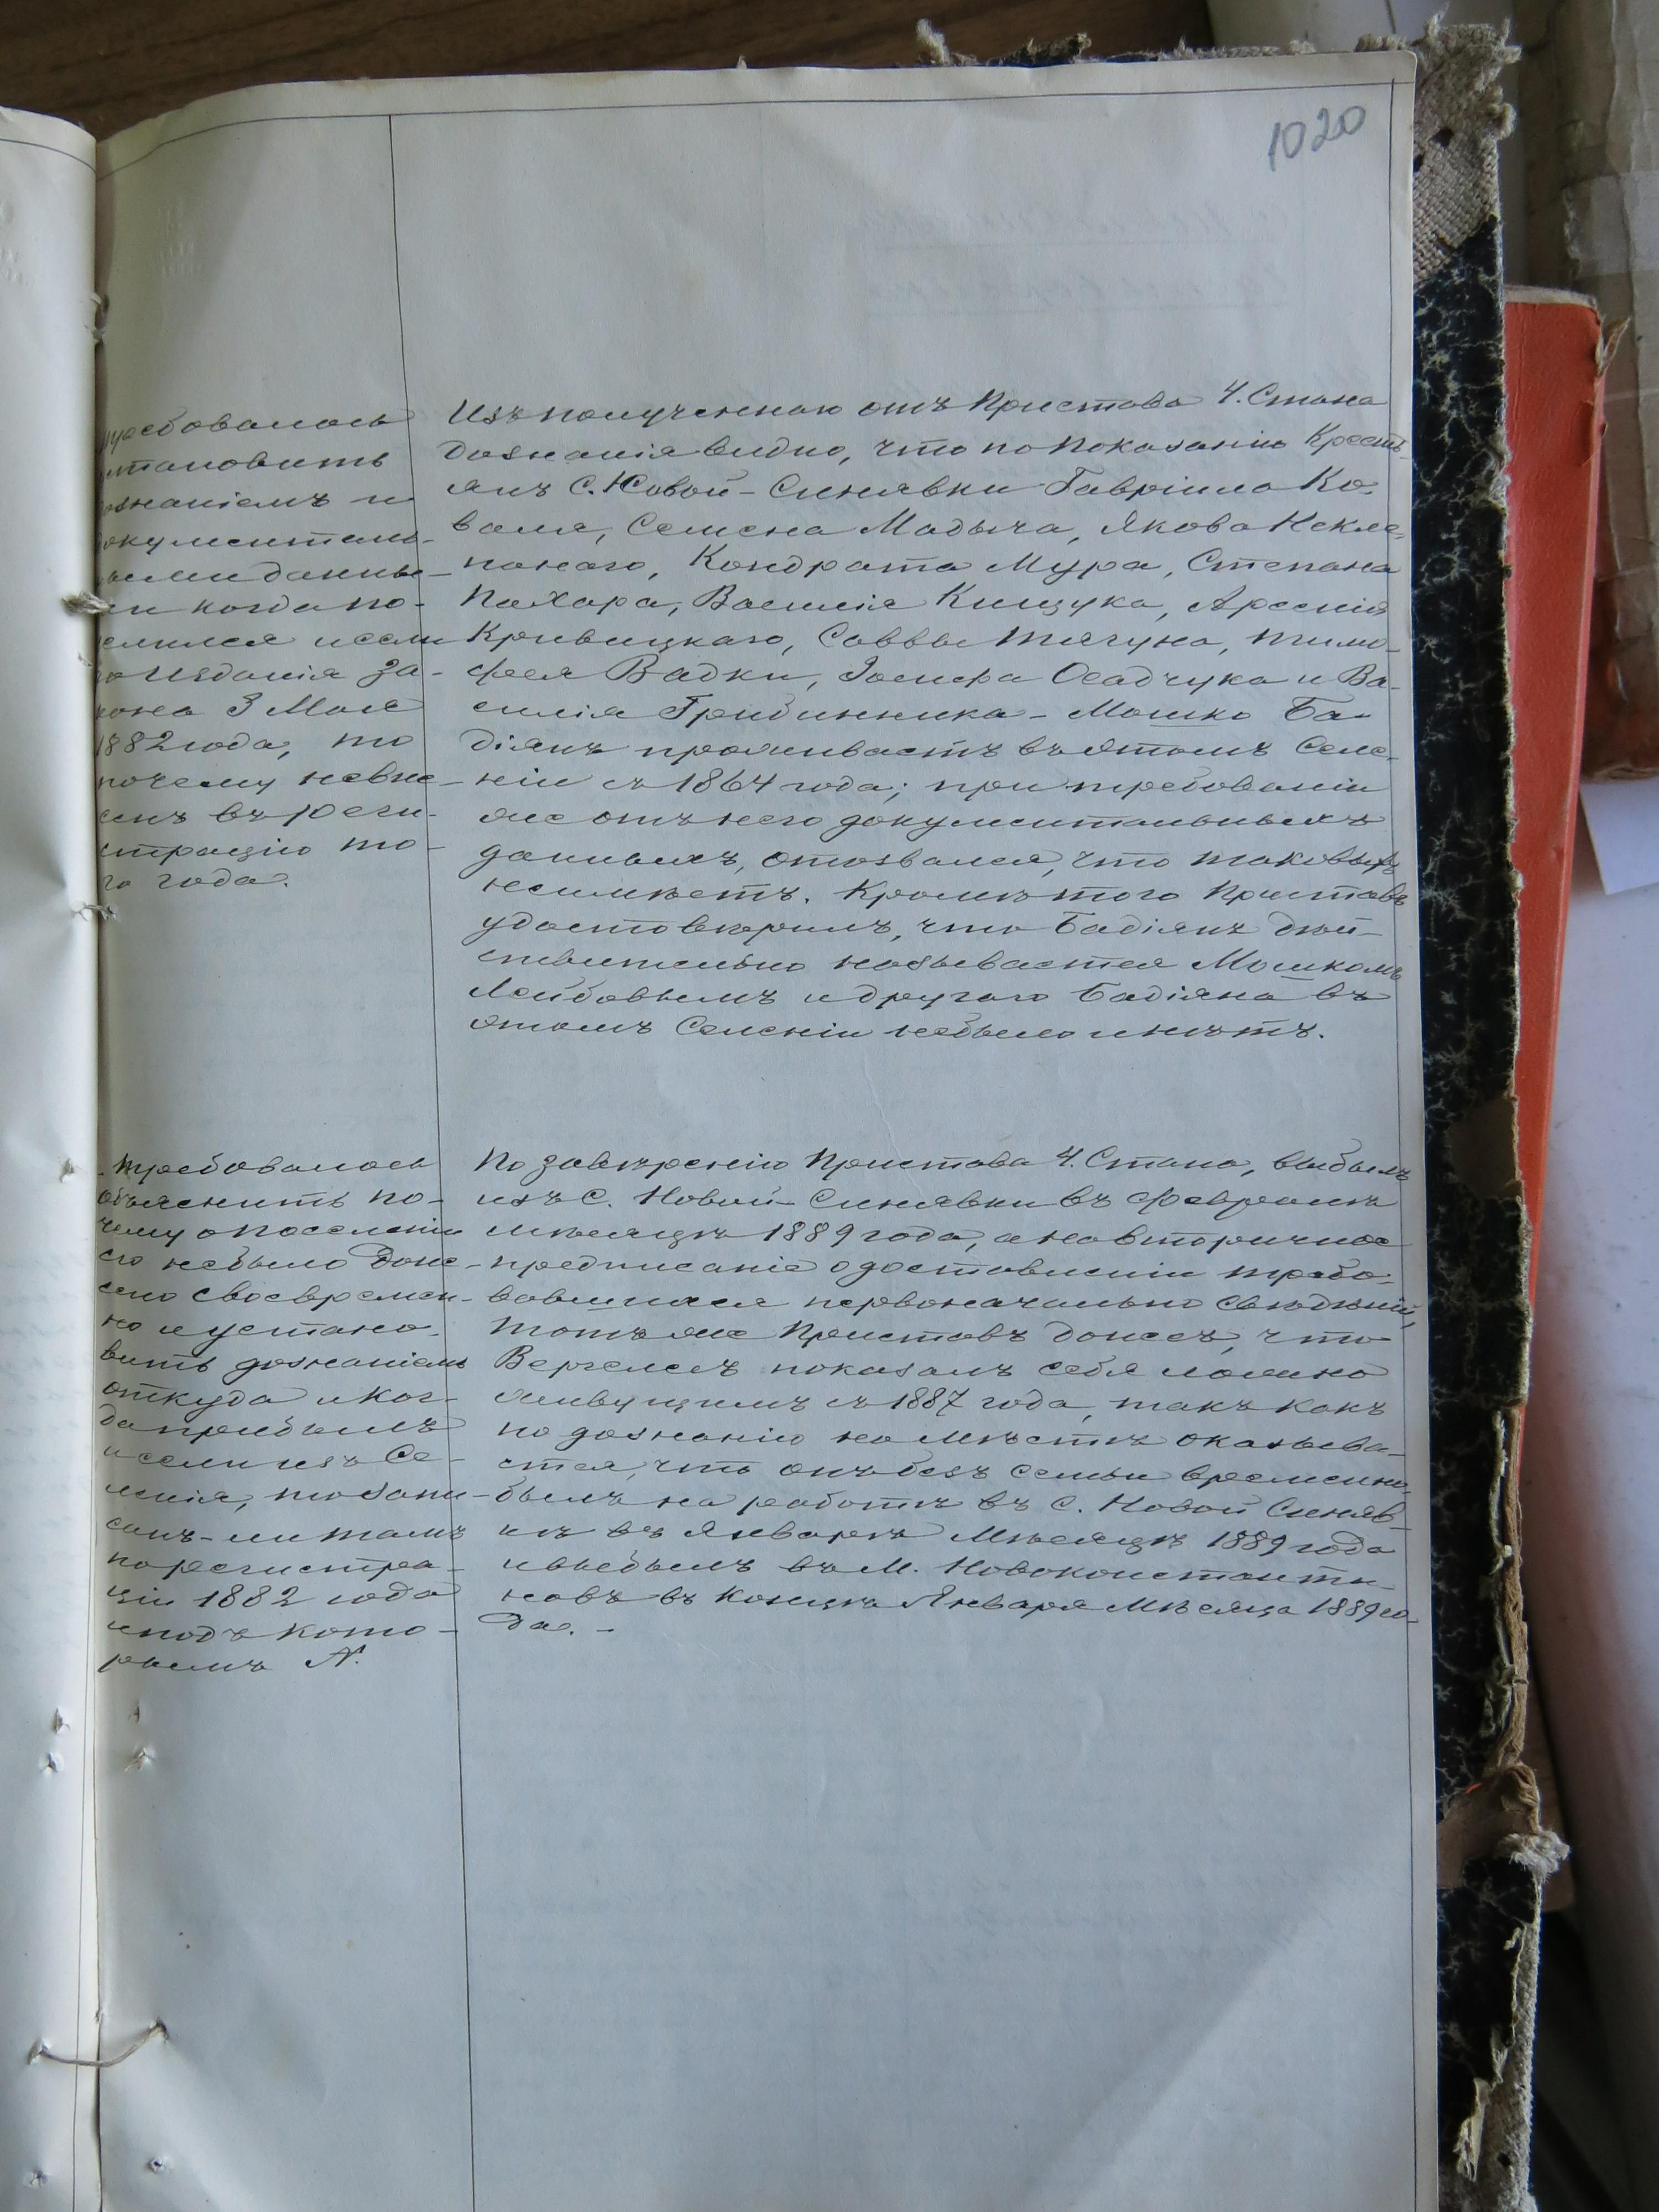 1020
требовалось
установить
дознаніемъ и
документаль-
ными данны-
ми когда по-
селился и если
до Изданія за-
кона 3 Мая
1882 года, то
почему невне-
сенъ въ реги-
страцію то-
го года.
Изъ полученнаго отъ Пристава 4. Стана
дознанія видно, что по показанію Кресть-
янъ С. Новой-Синявки Гавріила Ко-
валя, Семена Мадыча, Якова Некле-
панаго, Кондрата Мура, Степана
Пахара, Василія Кищука, Арсенія
Кривицкаго, Саввы Тягуна, Тимо-
фея Вадки, Іосифа Осадчука и Ва-
силія Гребинника - Мошко Ба-
діянъ проживаетъ въ этомъ Селе-
ніи съ 1864 года; при требованіи
же отъ него документальныхъ
данныхъ, отозвался, что таковыхъ
неимѣетъ. Кромѣ того Приставъ
удостовѣрилъ, что Бадіянъ дѣй-
ствительно называется Мошкомъ
Лейбовымъ и другаго Бадіяна въ
этомъ Селеніи небыло и нѣтъ.
Требовалось
объяснить по-
чему о поселеніи
его небыло доне-
сено своевремен-
но и устано-
вить дознаніемъ
откуда и ког-
да прибылъ
и если изъ Се-
ленія, то запи-
санъ-ли тамъ
по регистра-
ціи 1882 года
и подъ кото-
рымъ №.
По завѣренію Пристава 4. Стана, выбылъ
изъ С. Новой-Синявки въ Февралѣ
мѣсяцѣ 1889 года, а на вторичное
предписаніе о доставленіи требо-
вавшихся первоначально свѣдѣній,
тотъ же Приставъ донесъ, что
Вергелесъ показалъ себя ложно
живущимъ съ 1887 года, такъ какъ
по дознанію на мѣстѣ оказыва-
ется, что онъ безъ семьи временно
былъ на работѣ въ С. Новой Синяв-
кѣ въ Январѣ Мѣсяцѣ 1889 года
и выбылъ въ М. Новоконстанти-
новъ въ концѣ Января Мѣсяца 1889 го-
да. -